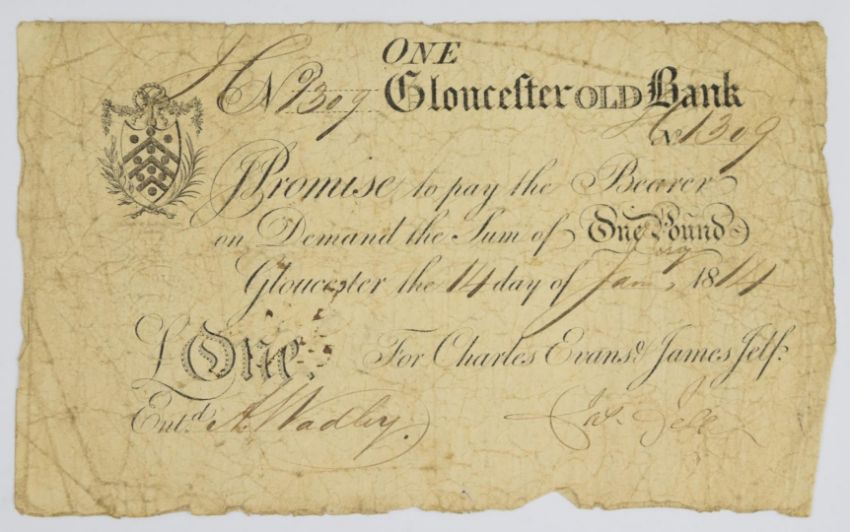 ONE
H No 1309 Gloucester OLD Bank
H No 1309
I Promise to pay the Bearer
on Demand the Sum of One Pound
Gloucester the 14 day of Jany 1814
£ One. For Charles Evans & James Jelf.
Entd. A. Wadley. Jas. Jelf